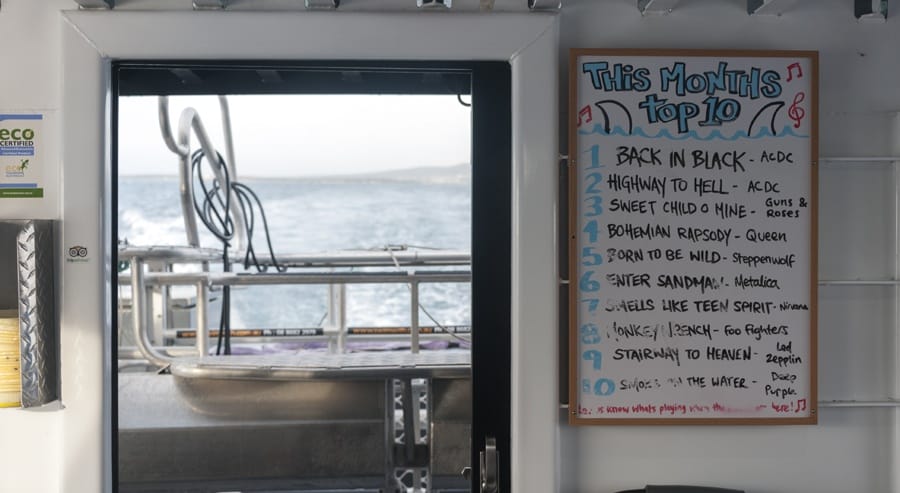 eco
CERTIFIED
THIS MONTHS
top 10
1 BACK IN BLACK - ACDC
2 HIGHWAY TO HELL - ACDC
3 SWEET CHILD O MINE - GUNS & ROSES
4 BOHEMIAN RAPSODY - Queen
5 BORN TO BE WILD - Steppenwolf
6 ENTER SANDMAN - Metalica
7 SMELLS LIKE TEEN SPIRIT - Nirvana
8 MONKEY WRENCH - Foo Fighters
9 STAIRWAY TO HEAVEN - Led Zepplin
10 SMOKE ON THE WATER - Deep Purple
us know whats playing when the here!